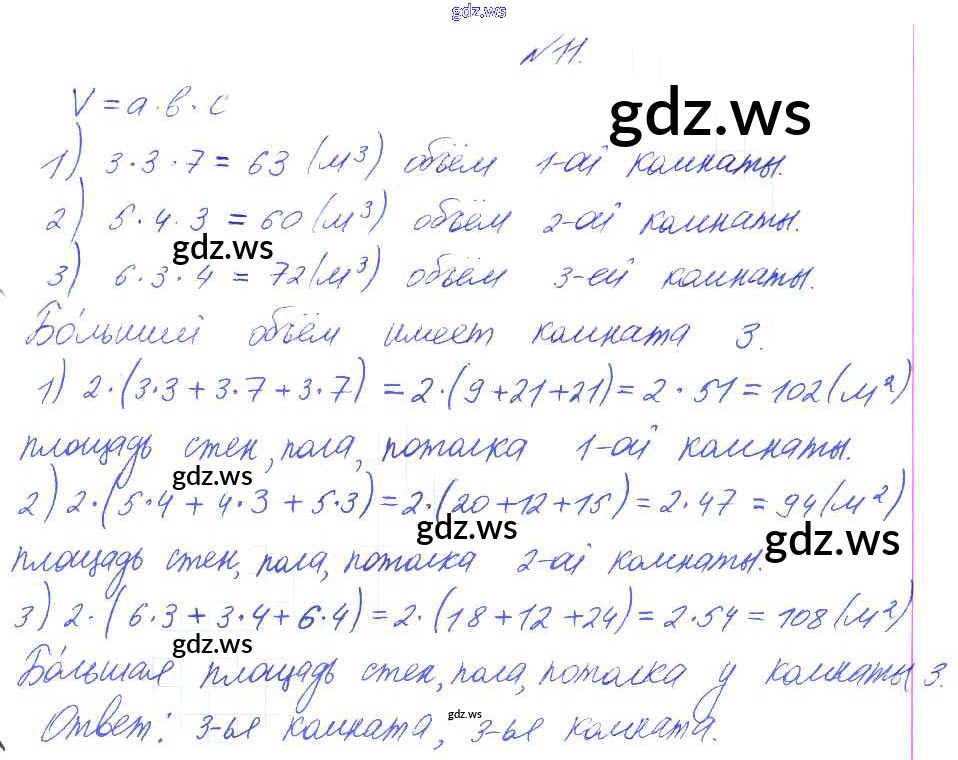 gdz.ws
№11.
gdz.ws
V = a·b·c
1) 3·3·7 = 63 (м³) объём 1-ой комнаты.
2) 5·4·3 = 60 (м³) объём 2-ой комнаты.
gdz.ws
3) 6·3·4 = 72 (м³) объём 3-ей комнаты.
Бо́льший объём имеет комната 3.
1) 2·(3·3+3·7+3·7) = 2·(9+21+21) = 2·51 = 102 (м²)
площадь стен, пола, потолка 1-ой комнаты.
gdz.ws
2) 2·(5·4+4·3+5·3) = 2·(20+12+15) = 2·47 = 94 (м²)
gdz.ws
gdz.ws
площадь стен, пола, потолка 2-ой комнаты.
3) 2·(6·3+3·4+6·4) = 2·(18+12+24) = 2·54 = 108 (м²)
gdz.ws
Бо́льшая площадь стен, пола, потолка у комнаты 3.
gdz.ws
Ответ: 3-ья комната, 3-ья комната.